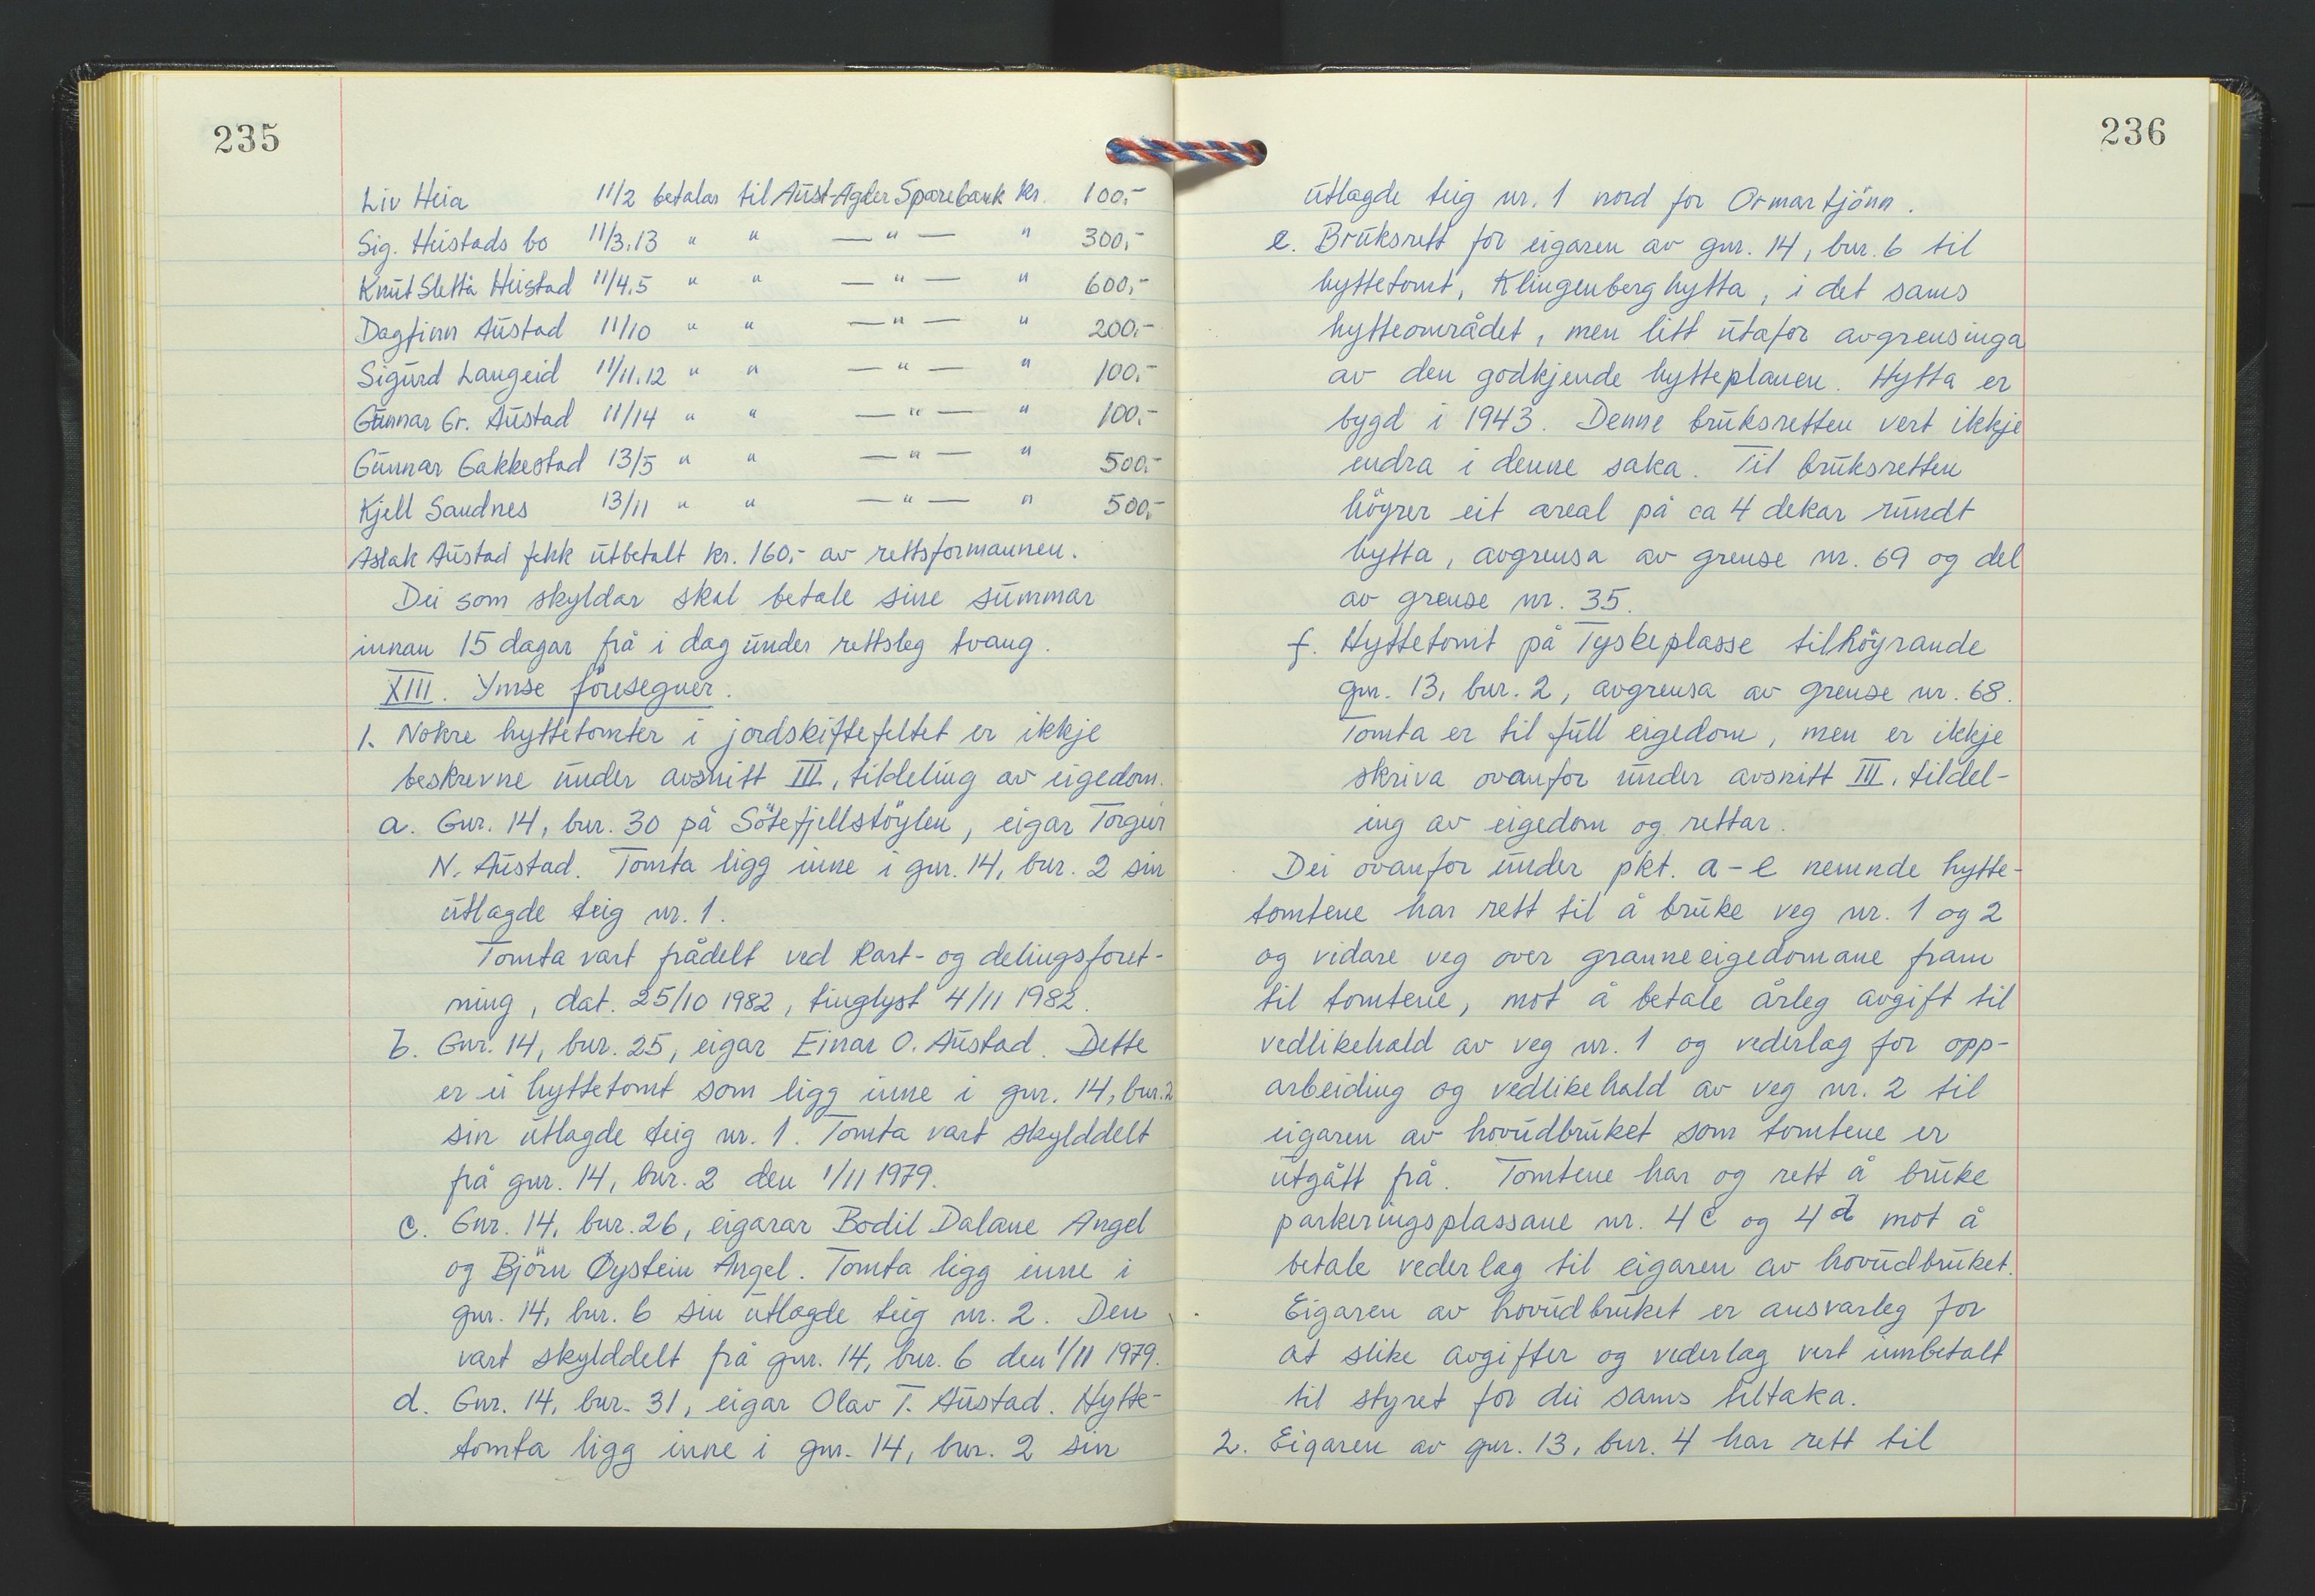 235
Liv Heia 11/2 betalar til Aust-Agder Sparebank kr. 100,-
Sig. Heistads bo 11/3,13 " " — " — " 300,-
Knut Slettå Heistad 11/4,5 " " — " — " 600,-
Dagfinn Austad 11/10 " " — " — " 200,-
Sigurd Langeid 11/11,12 " " — " — " 100,-
Gunnar Gr. Austad 11/14 " " — " — " 100,-
Gunnar Gakkestad 13/5 " " — " — " 500,-
Kjell Sandnes 13/11 " " — " — " 500,-
Aslak Austad fekk utbetalt kr. 160,- av rettsformannen.
Dei som skyldar skal betale sine summar
innan 15 dagar frå i dag under rettsleg tvang.
XIII. Ymse föresegner.
1. Nokre hyttetomter i jordskiftefeltet er ikkje
beskrevne under avsnitt III, tildeling av eigedom.
a. Gnr. 14, bnr. 30 på Sötefjellstöylen, eigar Torgeir
N. Austad. Tomta ligg inne i gnr. 14, bnr. 2 sin
utlagde teig nr. 1.
Tomta vart frådelt ved kart- og delingsforet-
ning, dat. 25/10 1982, tinglyst 4/11 1982.
b. Gnr. 14, bnr. 25, eigar Einar O. Austad. Dette
er ei hyttetomt som ligg inne i gnr. 14, bnr. 2
sin utlagde teig nr. 1. Tomta vart skylddelt
frå gnr. 14, bnr. 2 den 1/11 1979.
c. Gnr. 14, bnr. 26, eigarar Bodil Dalane Angel
og Björn Øystein Angel. Tomta ligg inne i
gnr. 14, bnr. 6 sin utlagde teig nr. 2. Den
vart skylddelt frå gnr. 14, bnr. 6 den 1/11 1979.
d. Gnr. 14, bnr. 31, eigar Olav T. Austad. Hytte-
tomta ligg inne i gnr. 14, bnr. 2 sin
236
utlagde teig nr. 1 nord for Ormartjönn.
e. Bruksrett for eigaren av gnr. 14, bnr. 6 til
hyttetomt, Klingenberghytta, i det sams
hytteområdet, men litt utafor avgrensinga
av den godkjende hytteplanen. Hytta er
bygd i 1943. Denne bruksretten vert ikkje
endra i denne saka. Til bruksretten
höyrer eit areal på ca 4 dekar rundt
hytta, avgrensa av grense nr. 69 og del
av grense nr. 35.
f. Hyttetomt på Tyskeplasse tilhöyrande
gnr. 13, bnr. 2, avgrensa av grense nr. 68.
Tomta er til full eigedom, men er ikkje
skriva ovanfor under avsnitt III, tildel-
ing av eigedom og rettar.
Dei ovanfor under pkt. a-e nemnde hytte-
tomtene har rett til å bruke veg nr. 1 og 2
og vidare veg over granneeigedomane fram
til tomtene, mot å betale årleg avgift til
vedlikehald av veg nr. 1 og vederlag for opp-
arbeiding og vedlikehald av veg nr. 2 til
eigaren av hovudbruket som tomtene er
utgått frå. Tomtene har og rett å bruke
parkeringsplassane nr. 4c og 4d mot å
betale vederlag til eigaren av hovudbruket.
Eigaren av hovudbruket er ansvarleg for
at slike avgifter og vederlag vert innbetalt
til styret for dei sams tiltaka.
2. Eigaren av gnr. 13, bnr. 4 har rett til